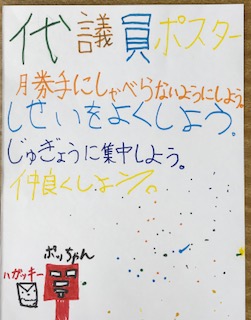 代議員ポスター
月勝手にしゃべらないようにしよう。
しせいをよくしよう。
じゅぎょうに集中しよう。
仲良くしよう。
ポッちゃん
ハガッキー